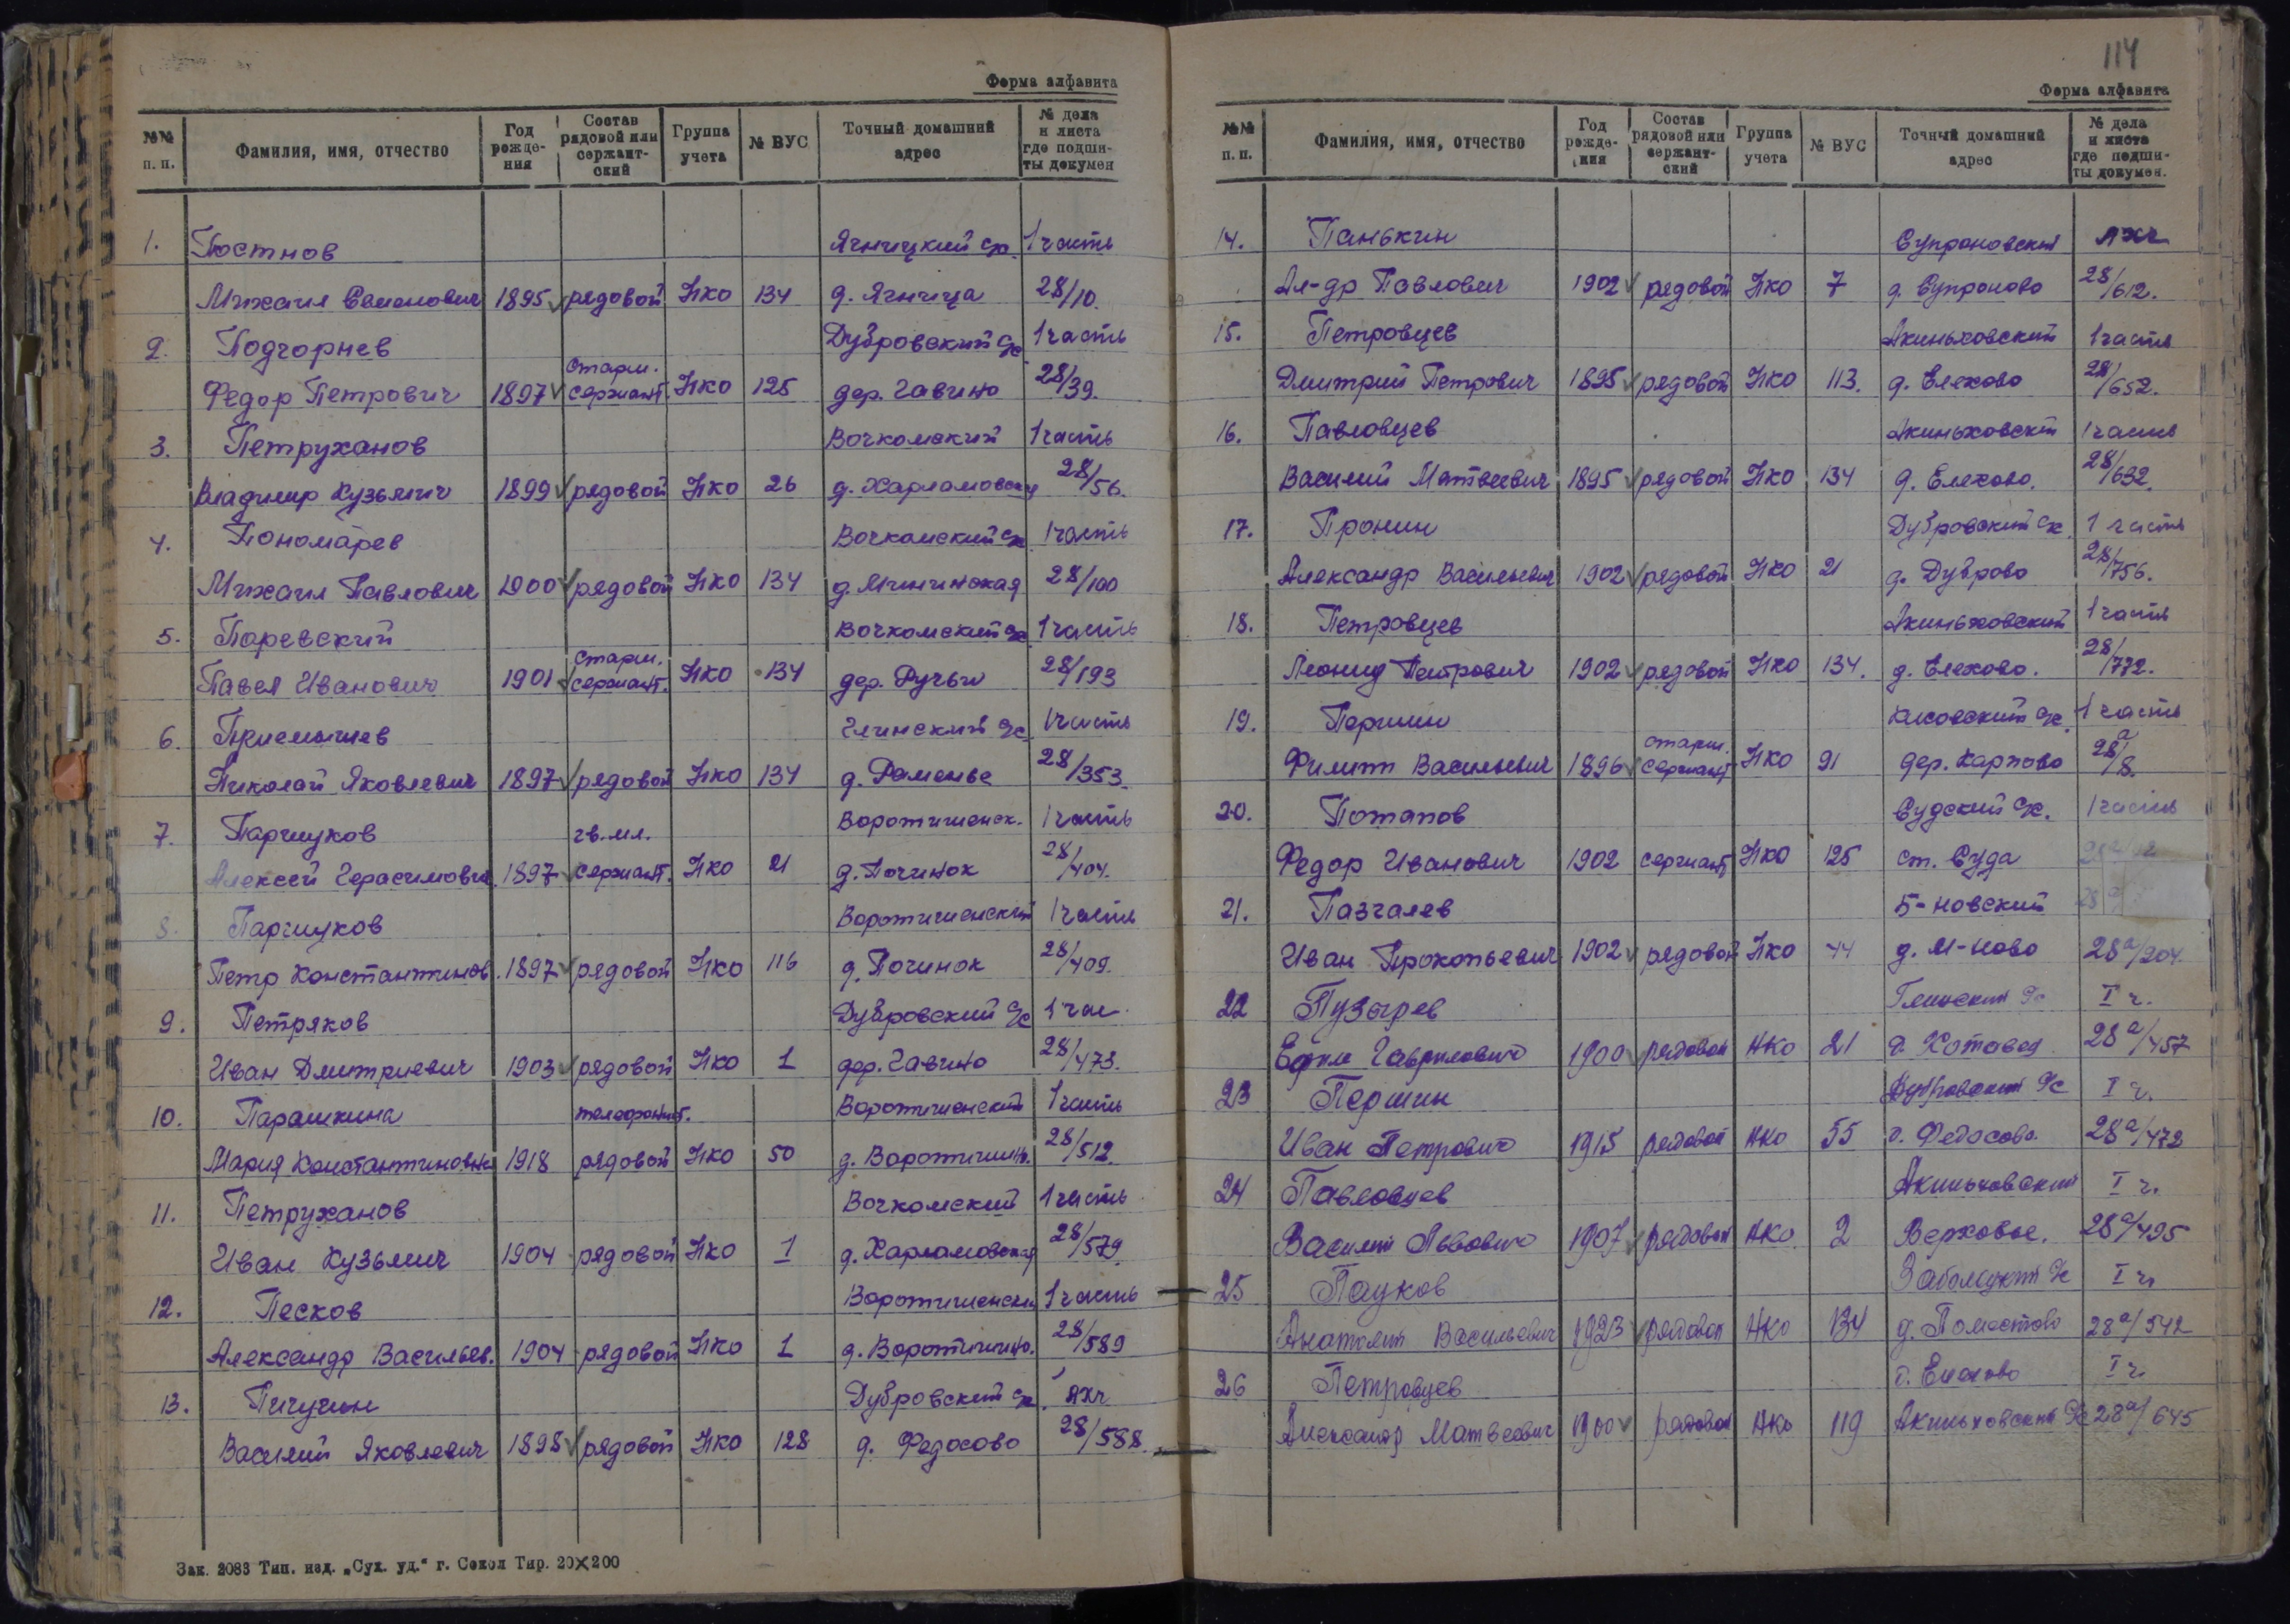 Форма алфавита
№№ п. п. Фамилия, имя, отчество Год рожде- ния Состав рядовой или сержант- ский Группа учета № ВУС Точный домашний адрес № дела и листа где подши- ты докумен
1. Постнов Ягницкий с/с. 1 часть
Михаил Семенович 1895 рядовой НКО 134 д. Ягница 28/10.
2. Подгорнев Дубровский с/с 1 часть
Федор Петрович 1897 старш. сержант. НКО 125 дер. Гавино 28/39.
3. Петруханов Вочкомский 1 часть
Владимир Кузьмич 1899 рядовой НКО 26 д. Харламовская 28/56.
4. Пономарев Вочкомский с/с 1 часть
Михаил Павлович 1900 рядовой НКО 134 28/100
5. Паревский Вочкомский с/с 1 часть
Павел Иванович 1901 старш. сержант. НКО 134 дер. Ручьи 28/193
6. Приемышев Глинский с/с 1 часть
Николай Яковлевич 1897 рядовой НКО 134 д. Раменье 28/353.
7. Паршуков гв. мл. Воротишенск. 1 часть
Алексей Герасимович. 1897 сержант. НКО 21 д. Починок 28/404.
8. Паршуков Воротишенский 1 часть
Петр Константинов. 1897 рядовой НКО 116 д. Починок 28/409.
9. Петряков Дубровский с/с 1 час
Иван Дмитриевич 1903 рядовой НКО 1 дер. Гавино 28/473.
10. Парашкина телефонист. Воротишенский 1 часть
Мария Константиновна 1918 рядовой НКО 50 д. Воротишин. 28/512.
11. Петруханов Вочкомский 1 часть
Иван Кузьмич 1904 рядовой НКО 1 д. Харламовская 28/579.
12. Песков Воротишенски 1 часть
Александр Васильев. 1904 рядовой НКО 1 д. Воротишино. 28/589
13. Пичугин Дубровский с/с. яхч
Василий Яковлевич 1898 рядовой НКО 128 д. Федосово 28/588.
Зак. 2083 Тип. изд. „Сух. уд.“ г. Сокол Тир. 20×200
114
Форма алфавита
№№ п. п. Фамилия, имя, отчество Год рожде- ния Состав рядовой или сержант- ский Группа учета № ВУС Точный домашний адрес № дела и листа где подши- ты докумен.
14. Панькин Супроновский яхч
Ал-др Павлович 1902 рядовой НКО 7 д. Супроново 28/612.
15. Петровцев Акиньховский 1 часть
Дмитрий Петрович 1895 рядовой НКО 113. д. Елехово 28/652.
16. Павловцев Акиньховский 1 часть
Василий Матвеевич 1895 рядовой НКО 134 д. Елехово. 28/632.
17. Пронин Дубровский с/с. 1 часть
Александр Васильевич 1902 рядовой НКО 21 д. Дуброво 28/756.
18. Петровцев Акиньховский 1 часть
Леонид Петрович 1902 рядовой НКО 134. д. Елехово. 28/772.
19. Першин с/с. 1 часть
Филипп Васильевич 1896 старш. сержант НКО 91 дер. Карпово 28а/8.
20. Потапов Судский с/с. 1 часть
Федор Иванович 1902 сержант НКО 125 ст. Суда
21. Пазгалев Б-новский
Иван Прокопьевич 1902 рядовой НКО 44 д. М-ново 28а/204.
22 Пузырев Глинский с/с I ч.
Ефим Гаврилович 1900 рядовой НКО 21 д. Котовец 28а/457
23 Першин Дубровский с/с I ч.
Иван Петрович 1915 рядовой НКО 55 д. Федосово. 28а/472
24 Павловцев Акиньховский I ч.
Василий Львович 1907 рядовой НКО 2 Верховье. 28а/495
25 Пауков с/с I ч.
Анатолий Васильевич 1923 рядовой НКО 134 д. Поместово 28а/542
26 Петровцев д. Елехово I ч.
Александр Матвеевич 1900 рядовой НКО 119 Акиньховский с/с 28а/645